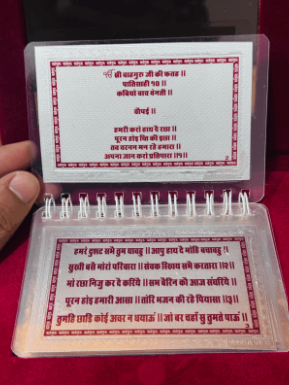 ੴ श्री वाहगुरू जी की फतह ॥
पातिसाही १० ॥
कबियो वाच बेनती ॥
चौपई ॥
हमरी करो हाथ दै रछा ॥
पूरन होइ चित की इछा ॥
तव चरनन मन रहै हमारा ॥
अपना जान करो प्रतिपारा ॥१॥
हमरे दुसट सभै तुम घावहु ॥ आपु हाथ दै मोहि बचावहु ॥
सुखी बसै मोरो परिवारा ॥ सेवक सिख्य सभै करतारा ॥२॥
मो रछा निजु कर दै करियै ॥ सभ बैरिन को आज संघरियै ॥
पूरन होइ हमारी आसा ॥ तोरि भजन की रहै पियासा ॥३॥
तुमहि छाडि कोई अवर न धयाऊं ॥ जो बर चहों सु तुमते पाऊं ॥